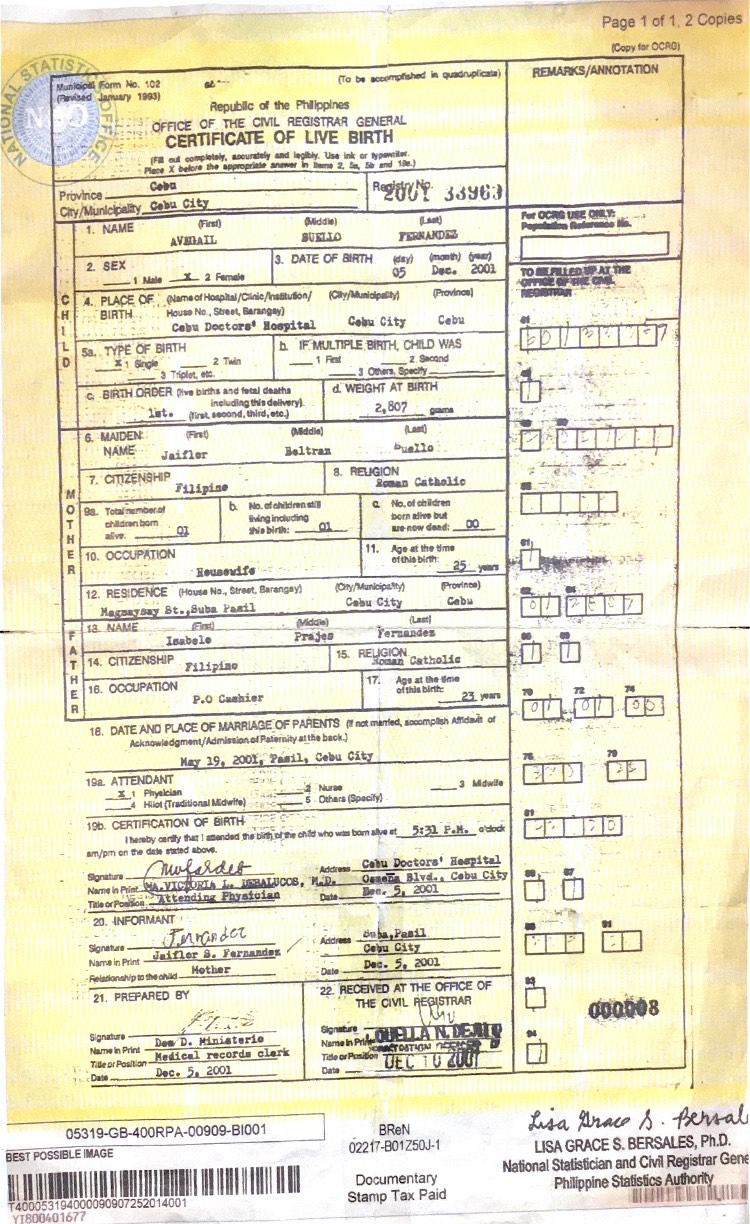 Page 1 of 1, 2 Copies
(Copy for OCRG)
NATIONAL STATISTICS OFFICE
NSO
Municipal Form No. 102
(Revised January 1993)
(To be accomplished in quadruplicate)
Republic of the Philippines
OFFICE OF THE CIVIL REGISTRAR GENERAL
CERTIFICATE OF LIVE BIRTH
(Fill out completely, accurately and legibly. Use ink or typewriter.
Place X before the appropriate answer in items 2, 5a, 5b and 19a.)
REMARKS/ANNOTATION
Province Cebu
City/Municipality Cebu City
Registry No.
2001 33963
For OCRG USE ONLY:
Population Reference No.
TO BE FILLED UP AT THE
OFFICE OF THE CIVIL
REGISTRAR
CHILD
1. NAME (First) (Middle) (Last)
AVEGAIL SUELLO FERNANDEZ
2. SEX
1 Male X 2 Female
3. DATE OF BIRTH (day) (month) (year)
05 Dec. 2001
4. PLACE OF BIRTH (Name of Hospital/Clinic/Institution/ (City/Municipality) (Province)
House No., Street, Barangay)
Cebu Doctors' Hospital Cebu City Cebu
5a. TYPE OF BIRTH
X 1 Single 2 Twin
3 Triplet, etc.
b. IF MULTIPLE BIRTH, CHILD WAS
1 First 2 Second
3 Others, Specify
c. BIRTH ORDER (live births and fetal deaths
including this delivery)
1st. (first, second, third, etc.)
d. WEIGHT AT BIRTH
2,807 grams
MOTHER
6. MAIDEN NAME (First) (Middle) (Last)
Jaifler Beltran Suello
7. CITIZENSHIP
Filipino
8. RELIGION
Roman Catholic
9a. Total number of
children born
alive: 01
b. No. of children still
living including
this birth: 01
c. No. of children
born alive but
are now dead: 00
10. OCCUPATION
Housewife
11. Age at the time
of this birth:
25 years
12. RESIDENCE (House No., Street, Barangay) (City/Municipality) (Province)
Magsaysay St., Suba Pasil Cebu City Cebu
FATHER
13. NAME (First) (Middle) (Last)
Isabelo Prajes Fernandez
14. CITIZENSHIP
Filipino
15. RELIGION
Roman Catholic
16. OCCUPATION
P.O Cashier
17. Age at the time
of this birth:
23 years
18. DATE AND PLACE OF MARRIAGE OF PARENTS (If not married, accomplish Affidavit of
Acknowledgment/Admission of Paternity at the back.)
May 19, 2001, Pasil, Cebu City
19a. ATTENDANT
X 1 Physician 2 Nurse 3 Midwife
4 Hilot (Traditional Midwife) 5 Others (Specify)
19b. CERTIFICATION OF BIRTH
I hereby certify that I attended the birth of the child who was born alive at 5:31 P.M. o'clock
am/pm on the date stated above.
Signature
Name in Print MA. VICTORIA L. DEBALUCOS, M.D.
Title or Position Attending Physician
Address Cebu Doctors' Hospital
Osmeña Blvd., Cebu City
Date Dec. 5, 2001
20. INFORMANT
Signature Fernandez
Name in Print Jaifler S. Fernandez
Relationship to the child Mother
Address Suba, Pasil
Cebu City
Date Dec. 5, 2001
21. PREPARED BY
Signature
Name in Print D. Ministerio
Title or Position Medical records clerk
Date Dec. 5, 2001
22. RECEIVED AT THE OFFICE OF
THE CIVIL REGISTRAR
Signature
Name in Print
Title or Position
Date DEC 10 2001
000008
05319-GB-400RPA-00909-BI001
BEST POSSIBLE IMAGE
T400053194000090907252014001
YT800401677
BReN
02217-B01Z50J-1
Documentary
Stamp Tax Paid
Lisa Grace S. Bersal
LISA GRACE S. BERSALES, Ph.D.
National Statistician and Civil Registrar Gene
Philippine Statistics Authority